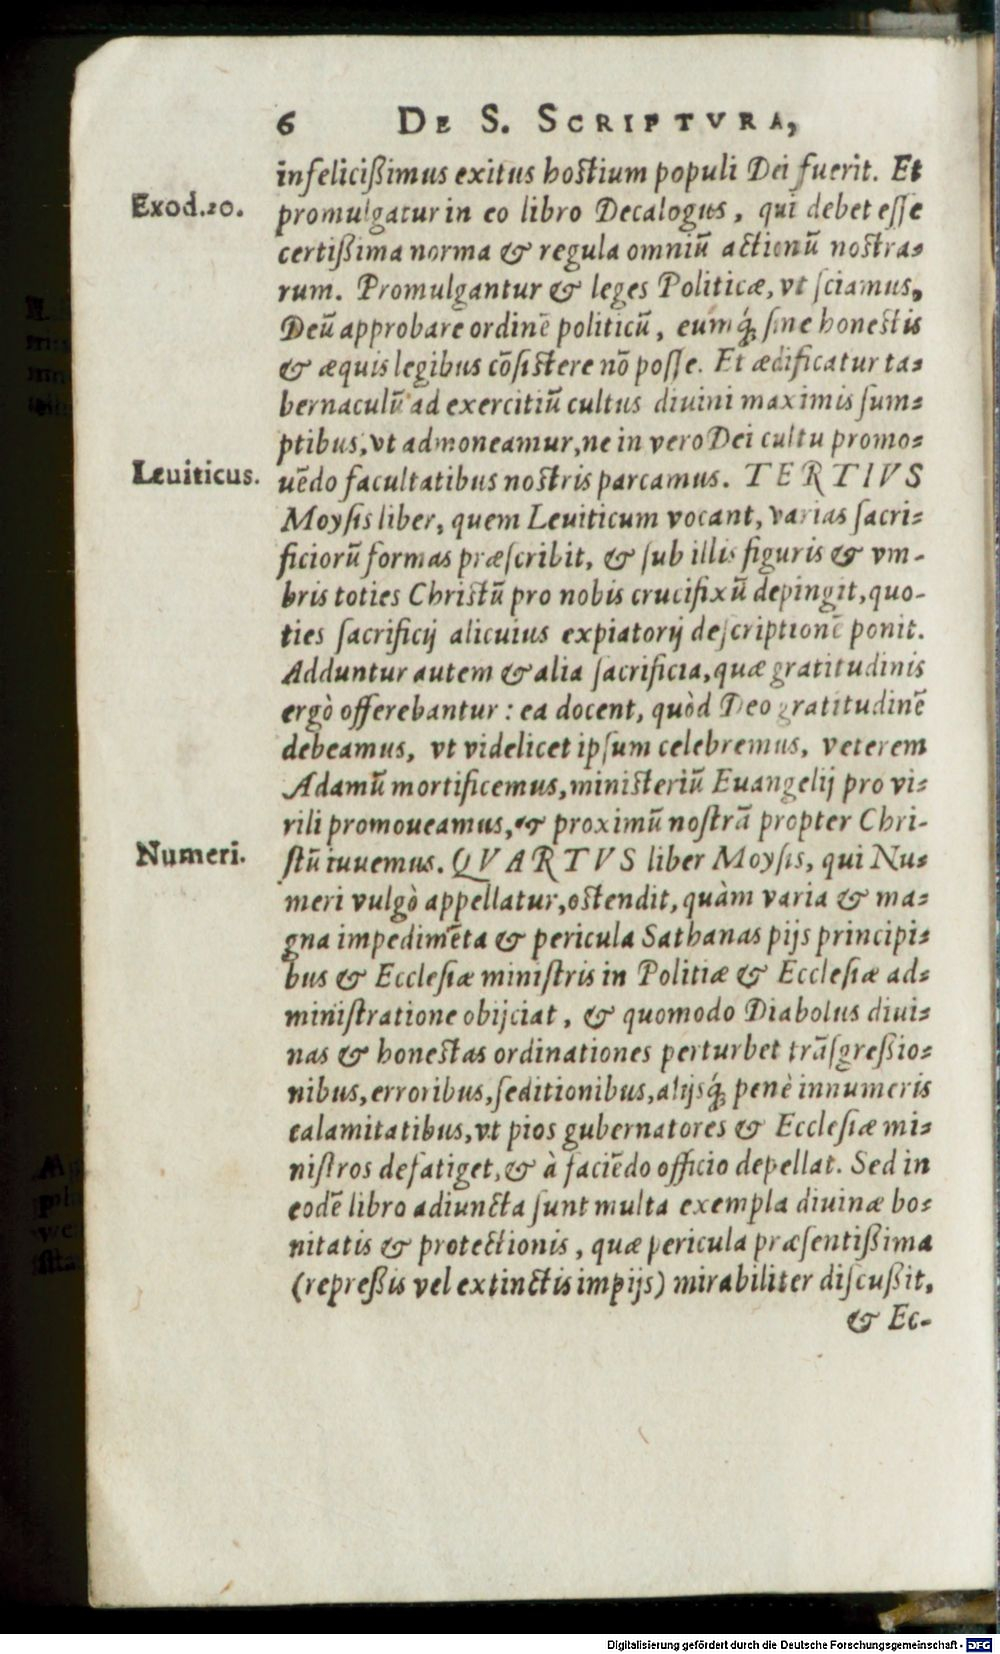 6 DE S. SCRIPTVRA,
infelicißimus exitus hostium populi Dei fuerit. Et
Exod.20.
promulgatur in eo libro Decalogus, qui debet eſſe
certißima norma & regula omniũ actionũ nostra⸗
rum. Promulgantur & leges Politicæ, vt ſciamus,
Deũ approbare ordinẽ politicũ, eumq́; ſine honestis
& æquis legibus cõſistere nõ poſſe. Et ædificatur ta⸗
bernaculũ ad exercitiũ cultus diuini maximis ſum⸗
ptibus, vt admoneamur, ne in vero Dei cultu promo⸗
Leuiticus.
uẽdo facultatibus nostris parcamus. TERTIVS
Moyſis liber, quem Leuiticum vocant, varias ſacri⸗
ficiorũ formas præſcribit, & ſub illis figuris & vm-
bris toties Christũ pro nobis crucifixũ depingit, quo-
ties ſacrificij alicuius expiatorij deſcriptionẽ ponit.
Adduntur autem & alia ſacrificia, quæ gratitudinis
ergò offerebantur : ea docent, quòd Deo gratitudinẽ
debeamus, vt videlicet ipſum celebremus, veterem
Adamũ mortificemus, ministeriũ Euangelij pro vi⸗
rili promoueamus, & proximũ noſtrã propter Chri-
Numeri.
ſtũ iuuemus. QVARTVS liber Moyſis, qui Nu⸗
meri vulgò appellatur, ostendit, quàm varia & ma⸗
gna impedimẽta & pericula Sathanas pijs principi⸗
bus & Eccleſiæ miniſtris in Politiæ & Eccleſiæ ad⸗
miniſtratione obijciat, & quomodo Diabolus diui⸗
nas & honestas ordinationes perturbet trãſgreßio⸗
nibus, erroribus, ſeditionibus, alijsq́; penè innumeris
calamitatibus, vt pios gubernatores & Eccleſiæ mi⸗
niſtros defatiget, & à faciẽdo officio depellat. Sed in
eodẽ libro adiuncta ſunt multa exempla diuinæ bo⸗
nitatis & protectionis, quæ pericula præſentißima
(repreßis vel extinctis impijs) mirabiliter diſcußit,
& Ec-
Digitalisierung gefördert durch die Deutsche Forschungsgemeinschaft - DFG